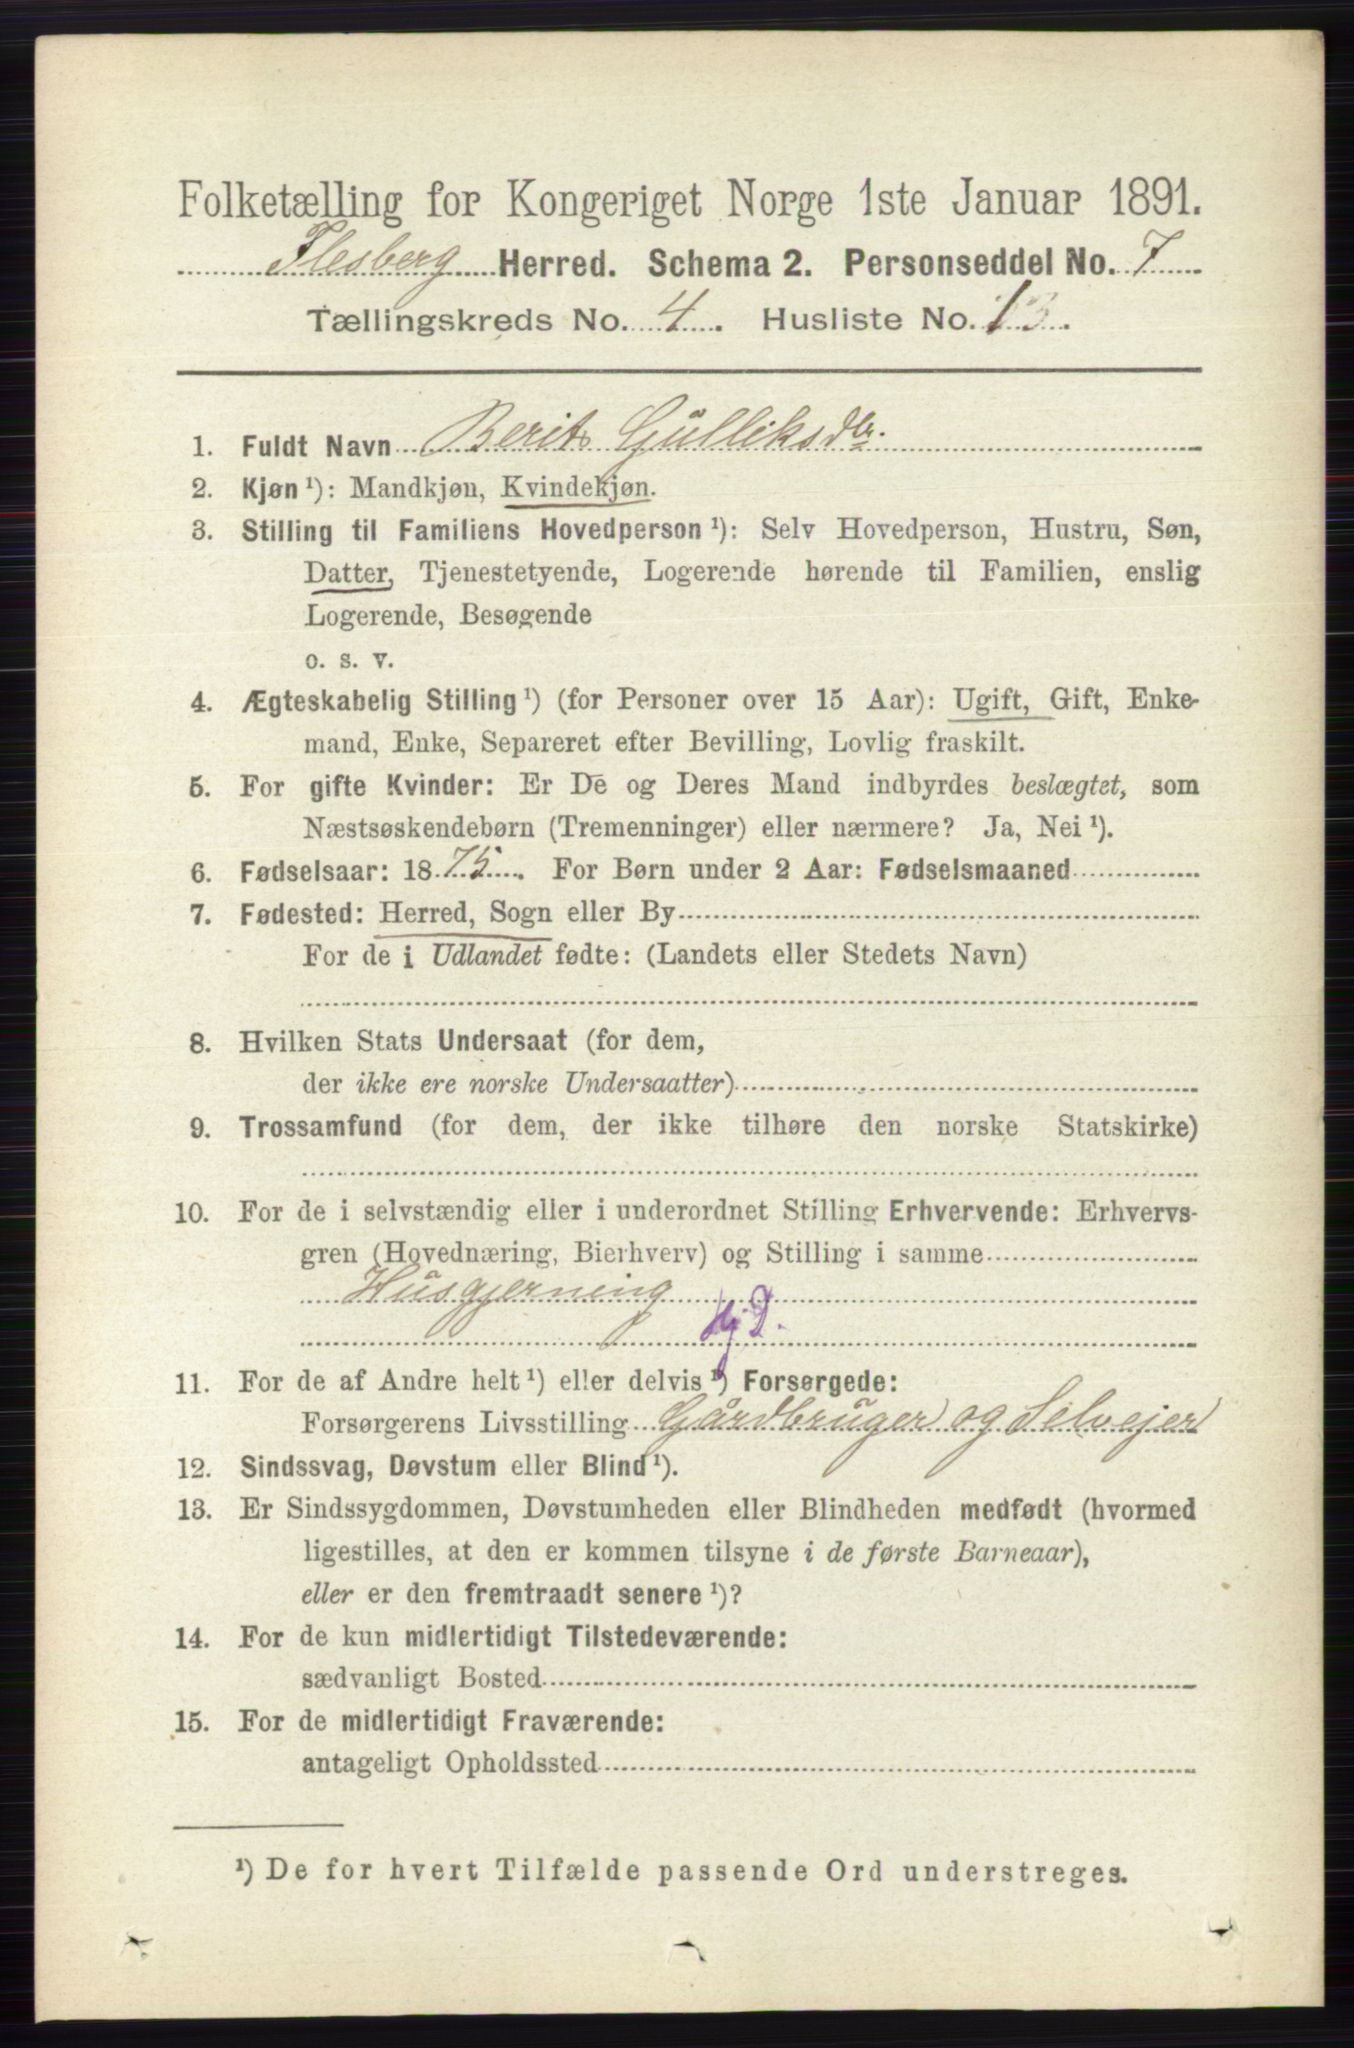 Folketælling for Kongeriget Norge 1ste Januar 1891.
Flesberg Herred. Schema 2. Personseddel No. 7
Tællingskreds No. 4. Husliste No. 13.
1. Fuldt Navn Berit Gulliksdtr.
2. Kjøn ¹): Mandkjøn, Kvindekjøn.
3. Stilling til Familiens Hovedperson ¹): Selv Hovedperson, Hustru, Søn,
Datter, Tjenestetyende, Logerende hørende til Familien, enslig
Logerende, Besøgende
o. s. v.
4. Ægteskabelig Stilling ¹) (for Personer over 15 Aar): Ugift, Gift, Enke-
mand, Enke, Separeret efter Bevilling, Lovlig fraskilt.
5. For gifte Kvinder: Er De og Deres Mand indbyrdes beslægtet, som
Næstsøskendebørn (Tremenninger) eller nærmere? Ja, Nei ¹).
6. Fødselsaar: 1875. For Børn under 2 Aar: Fødselsmaaned
7. Fødested: Herred, Sogn eller By
For de i Udlandet fødte: (Landets eller Stedets Navn)
8. Hvilken Stats Undersaat (for dem,
der ikke ere norske Undersaatter)
9. Trossamfund (for dem, der ikke tilhøre den norske Statskirke)
10. For de i selvstændig eller i underordnet Stilling Erhvervende: Erhvervs-
gren (Hovednæring, Bierhverv) og Stilling i samme
Husgjerning
11. For de af Andre helt ¹) eller delvis ¹) Forsørgede:
Forsørgerens Livsstilling Gårdbruger og Selvejer
12. Sindssvag, Døvstum eller Blind ¹).
13. Er Sindssygdommen, Døvstumheden eller Blindheden medfødt (hvormed
ligestilles, at den er kommen tilsyne i de første Barneaar),
eller er den fremtraadt senere ¹)?
14. For de kun midlertidigt Tilstedeværende:
sædvanligt Bosted
15. For de midlertidigt Fraværende:
antageligt Opholdssted
¹) De for hvert Tilfælde passende Ord understreges.